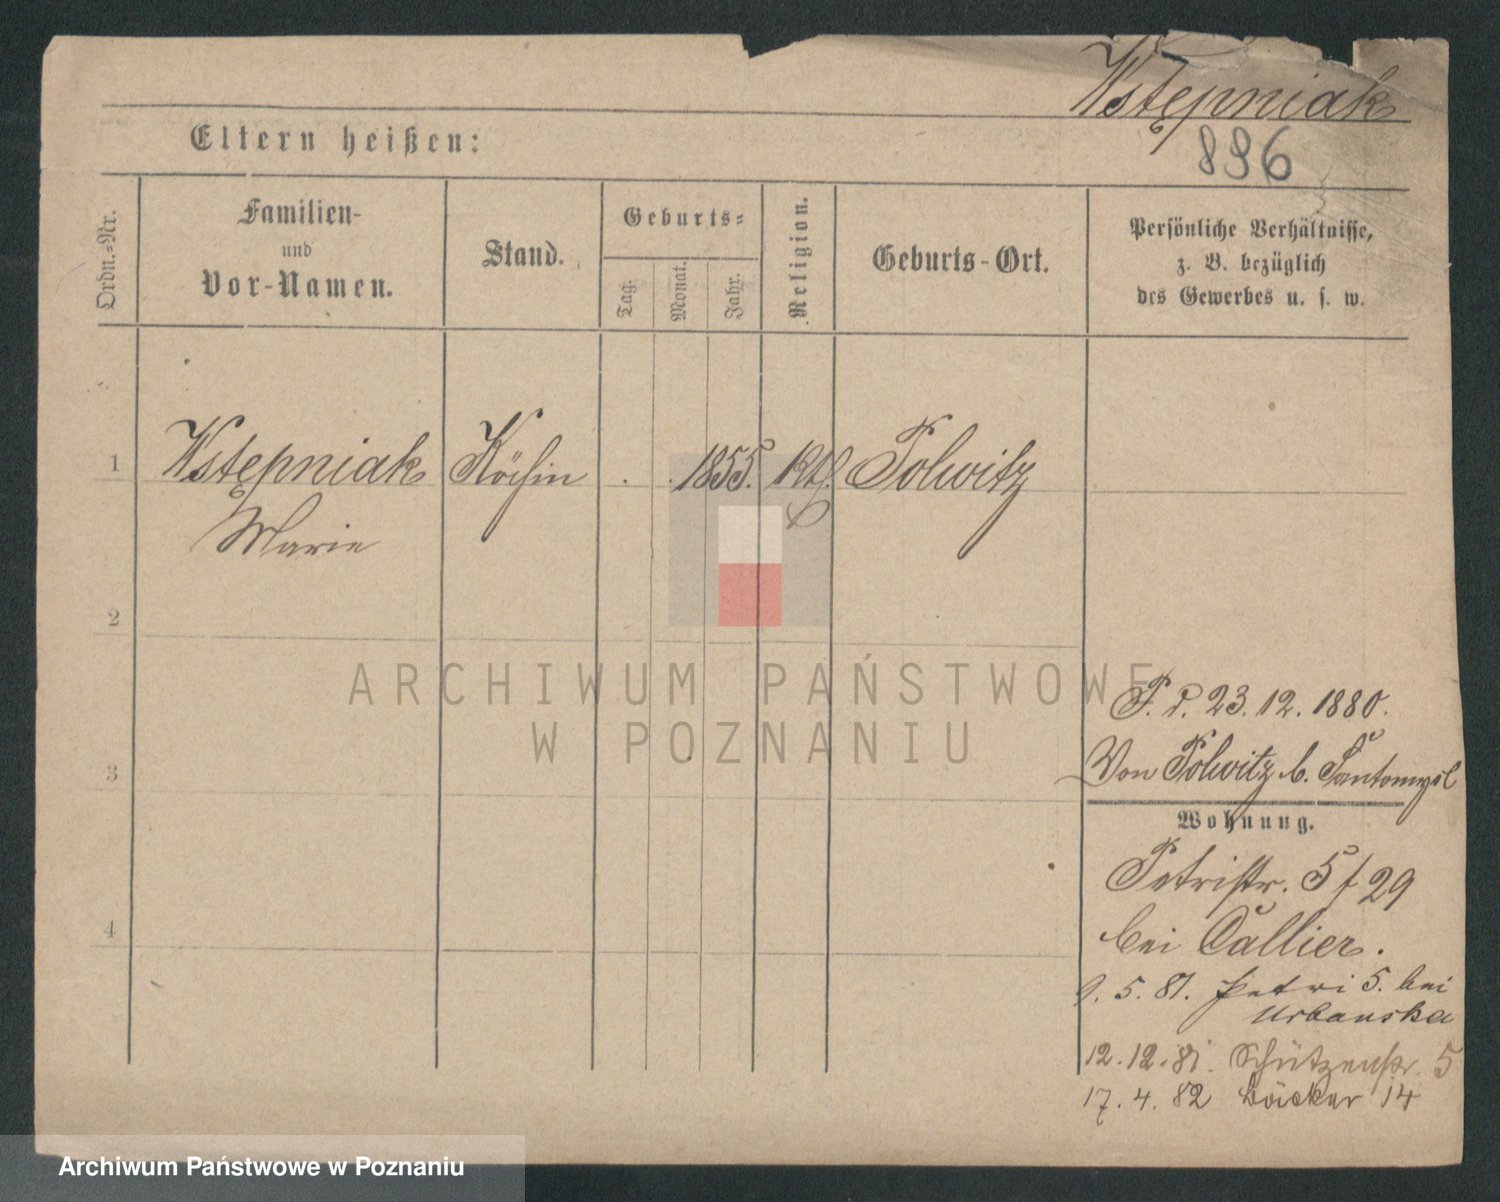 Wstępniak
Eltern heißen:
896
Ordn.-Nr.
Familien-
und
Vor-Namen.
Stand.
Geburts-
Tag.
Monat.
Jahr.
Religion.
Geburts-Ort.
Persönliche Verhältnisse,
z. B. bezüglich
des Gewerbes u. s. w.
1
Wstępniak
Köchin
1855.
Kth.
Polwitz
Marie
2
3
4
P. d. 23.12.1880.
Von Polwitz b. Santomysl
Wohnung.
Petristr. 5/29
bei Callier.
9. 5. 81. Petri 5. bei
Urbanska
12.12.81. Schützenstr. 5
17. 4. 82 Bäcker 14
ARCHIWUM PAŃSTWOWE
W POZNANIU
Archiwum Państwowe w Poznaniu